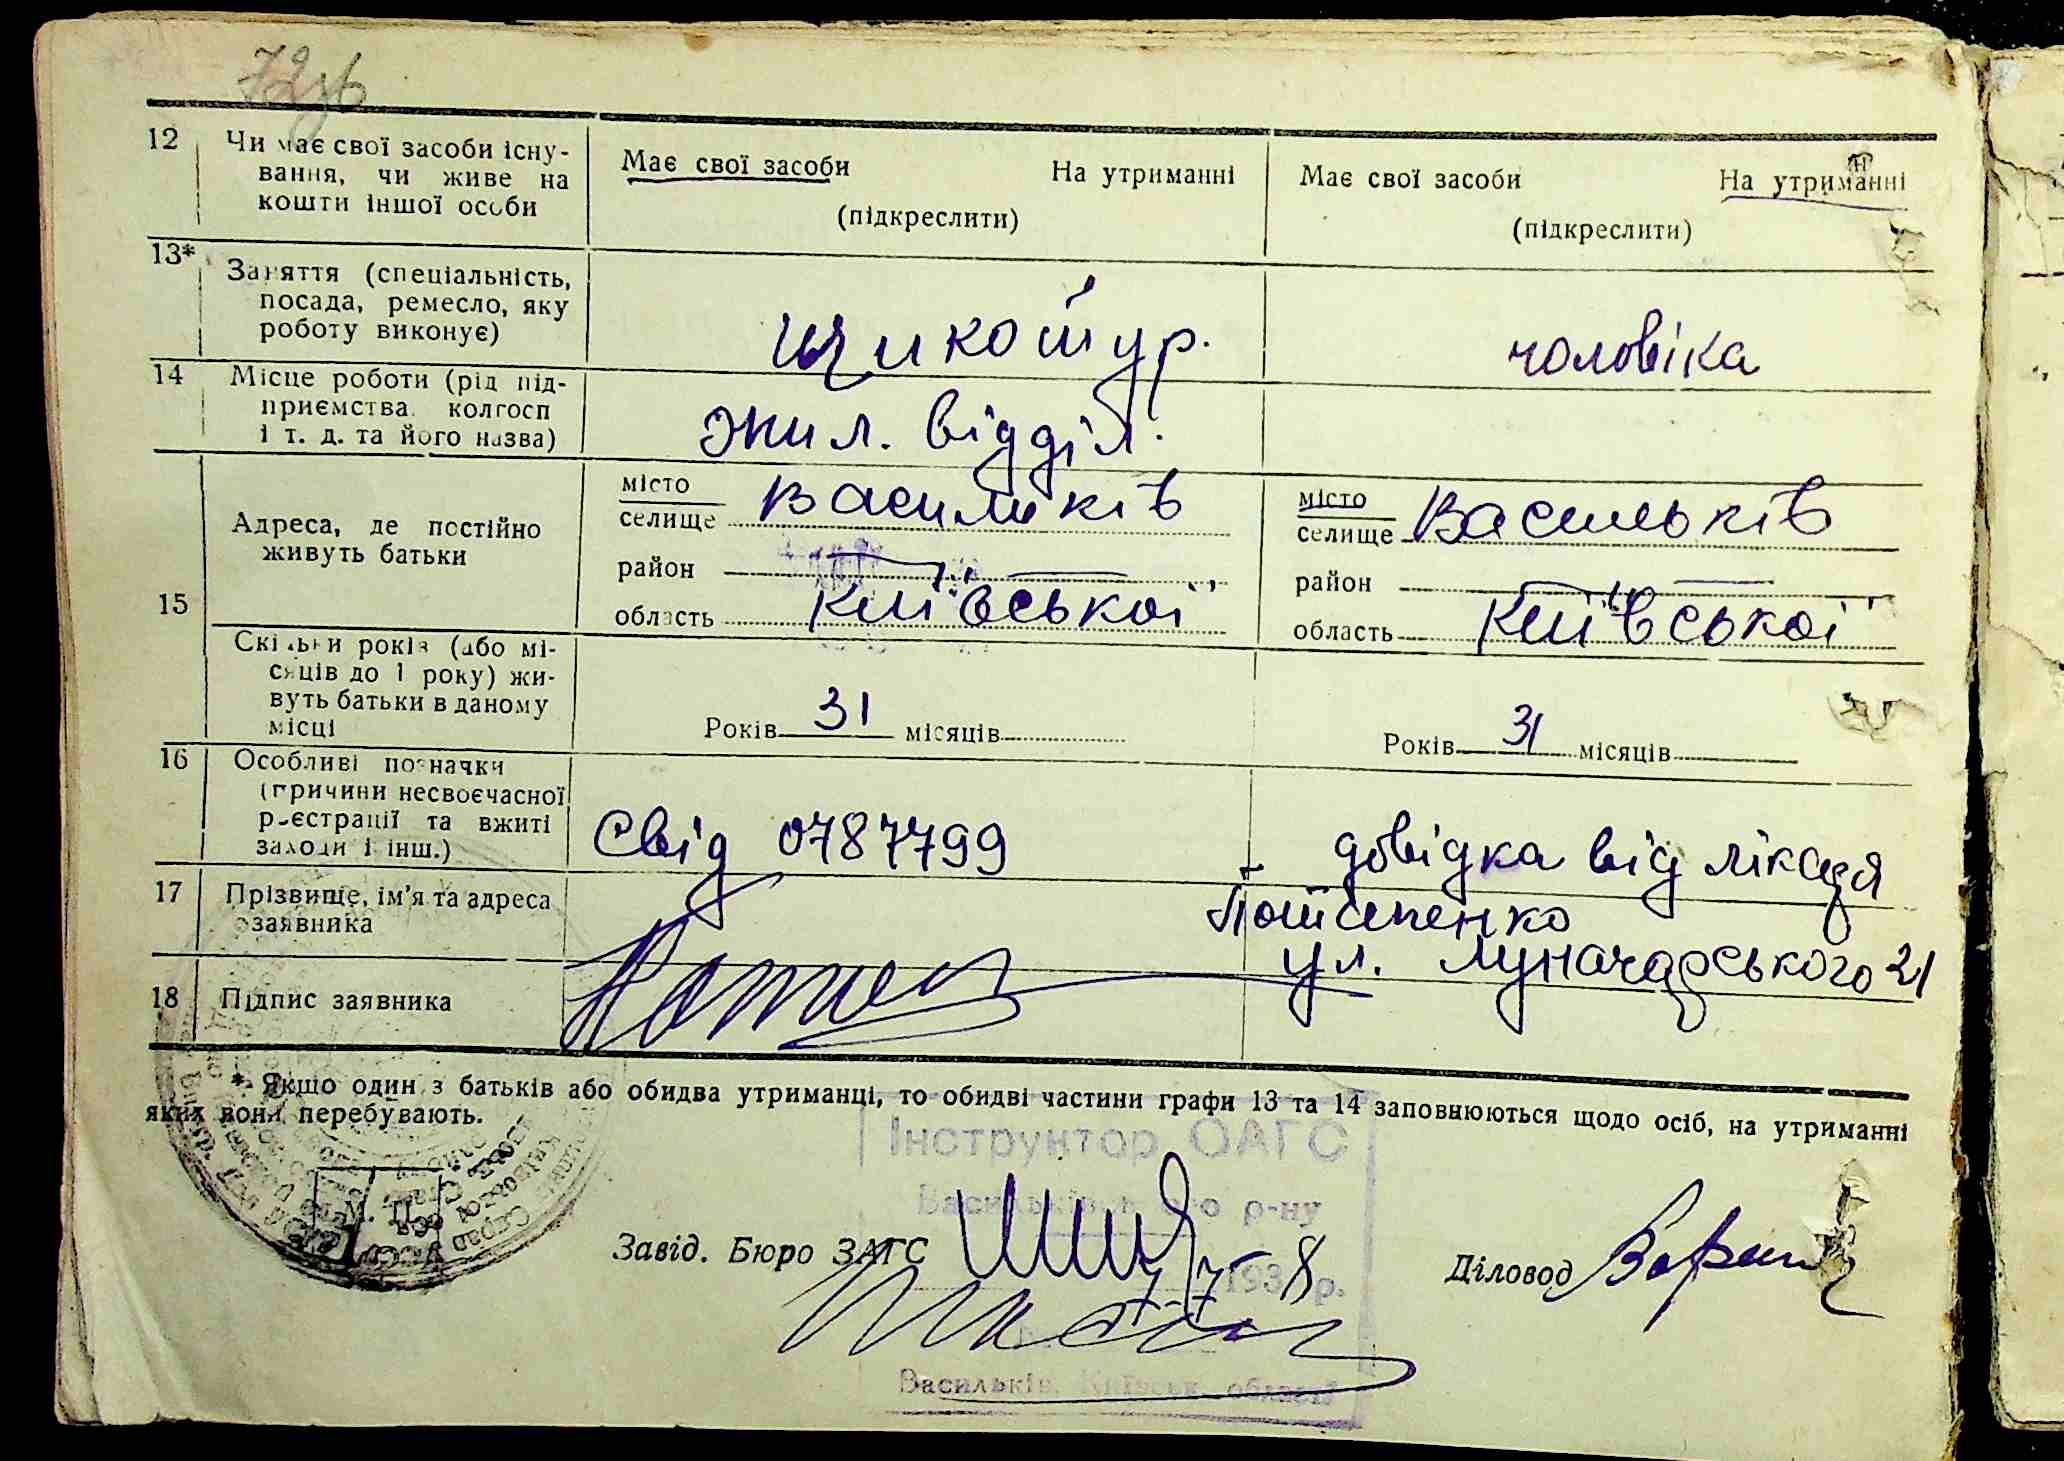 72зв
12 Чи має свої засоби існу-
вання, чи живе на
кошти іншої особи
Має свої засоби На утриманні
(підкреслити)
Має свої засоби На утриманні
(підкреслити)
13* Заняття (спеціальність,
посада, ремесло, яку
роботу виконує)
щикотур.
чоловіка
14 Місце роботи (рід під-
приємства, колгосп
і т. д. та його назва)
жил. відділ.
15 Адреса, де постійно
живуть батьки
місто
селище Васильків
район
область Київської
місто
селище Васильків
район
область Київської
Скільки років (або мі-
сяців до 1 року) жи-
вуть батьки в даному
місці
Років 31 місяців
Років 31 місяців
16 Особливі позначки
(причини несвоєчасної
реєстрації та вжиті
заходи і інш.)
Свід 0787799
довідка від лікаря
17 Прізвище, ім'я та адреса
заявника
ул. Луначарського 21
18 Підпис заявника
* Якщо один з батьків або обидва утриманці, то обидві частини графи 13 та 14 заповнюються щодо осіб, на утриманні
яких вони перебувають.
Інструктор ОАГС
Васильківськ ого р-ну
М. П.
Завід. Бюро ЗАГС
7 7 1938 р.
Діловод
Васильків, Київськ. області